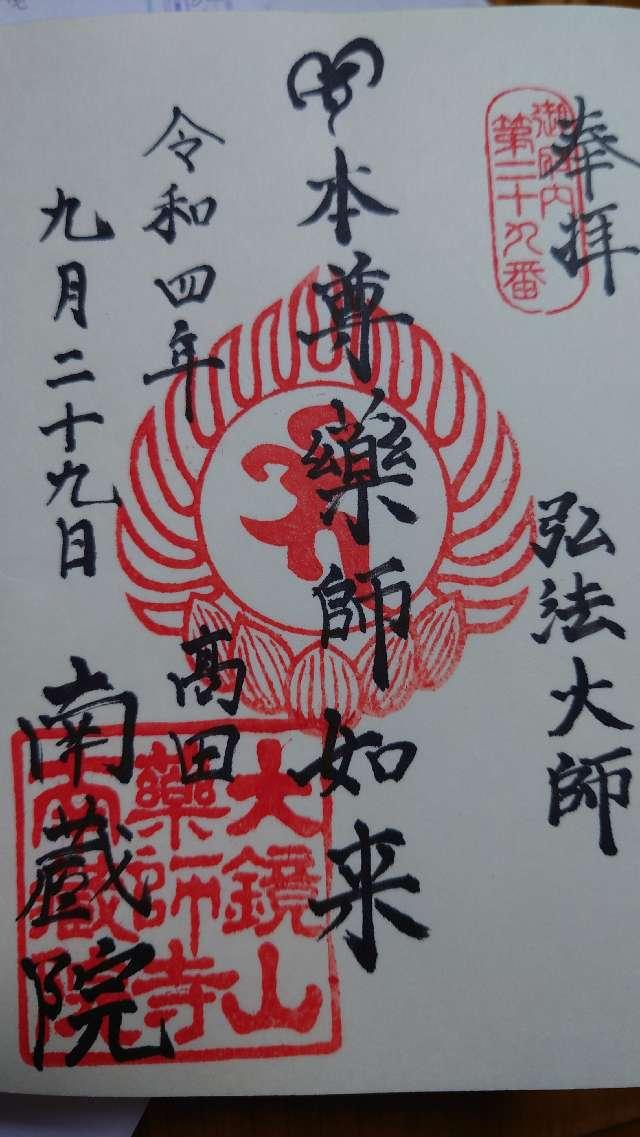 奉拝
御府内
第二十九番
弘法大師
本尊藥師如来
令和四年
九月二十九日
高田
南蔵院
大鏡山
藥師寺
南蔵院